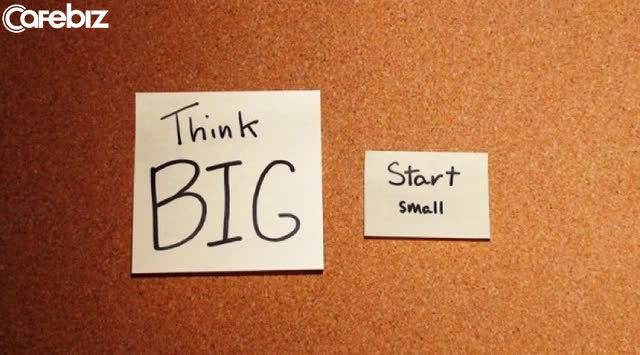 Cafebiz
Think
BIG
Start
small